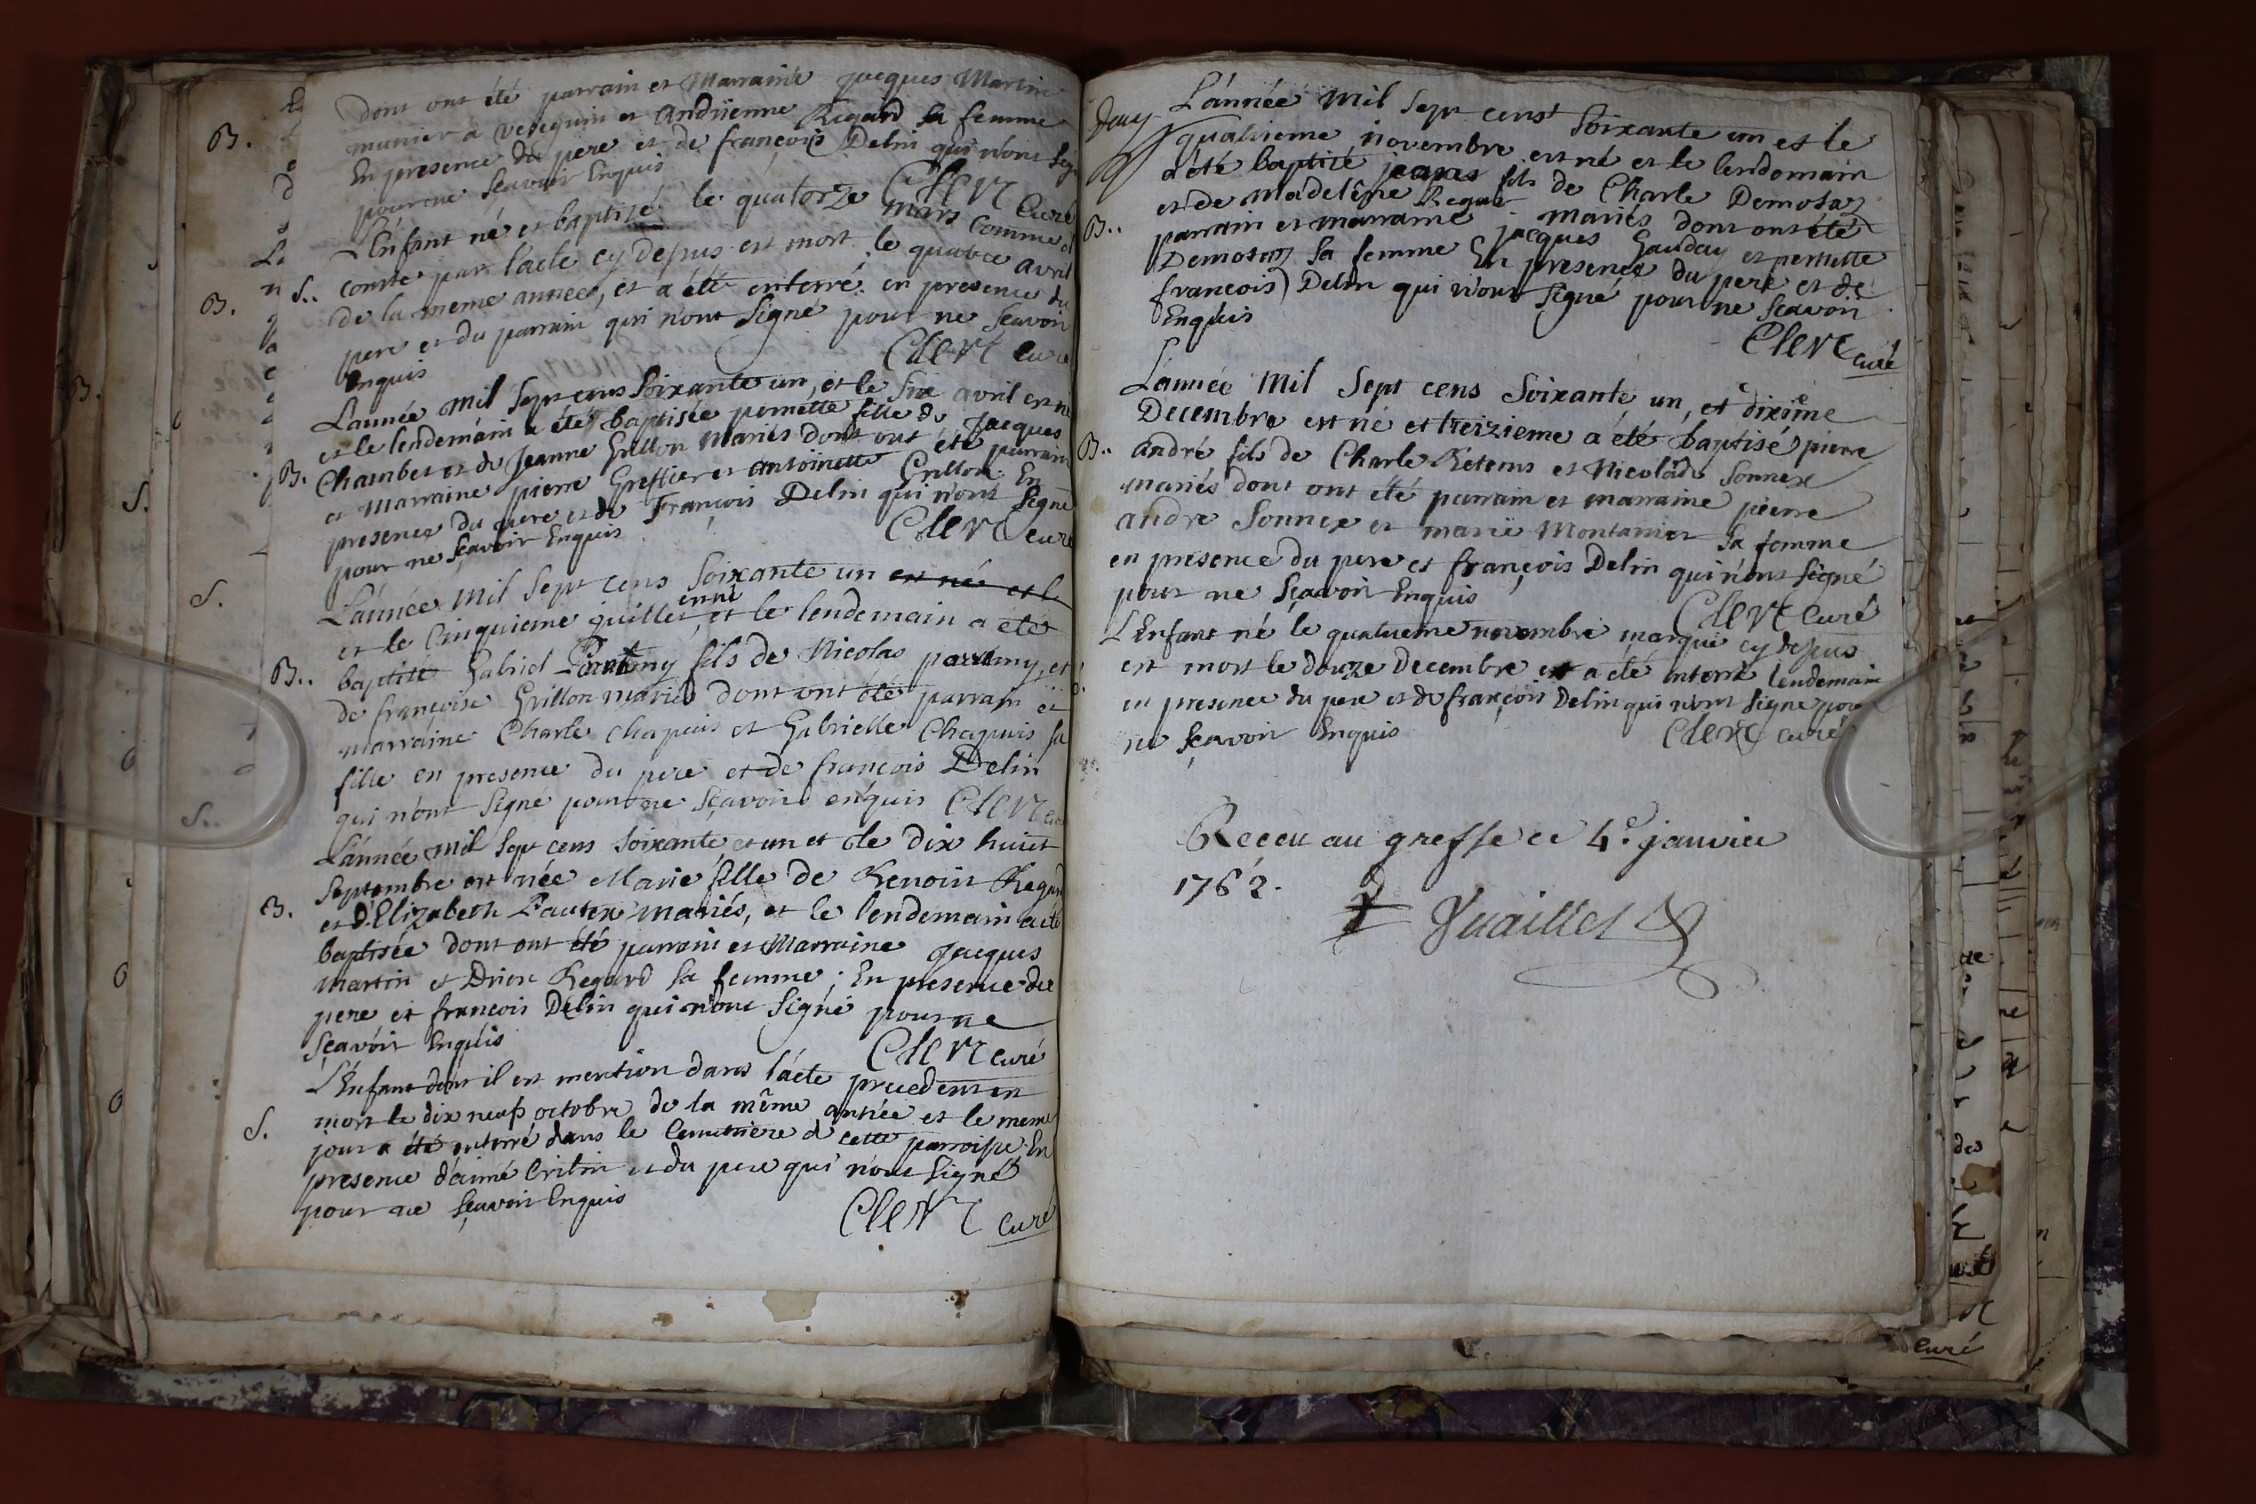 dont ont été parrain et Marraine jacques Martin
munier a vesegnin et Andrienne Regard sa femme
En presence du pere et de françois Delin qui n'ont signé
pour ne sçavoir Enquis Clerc Curé
B.
L'Enfant né et baptizé le quatorze mars comme il
S.. conste par l'acte cy depus est mort le quatre avril
de la meme année, et a été enterré en presence du
pere et du parrain qui n'ont signé pour ne sçavoir
Enquis Clerc curé
B.
L'année mil sept cens soixante un, et le six avril est né
et le lendemain a été baptisée pernette fille de Jacques
B. Chambet et de Jeanne Grillon Mariés dont ont été parrain
et Marraine pierre Greffier et Antoinette Crillon En
presence du pere et de François Delin qui n'ont signé
pour ne sçavoir Enquis Clerc curé
L'année Mil sept cens soixante un est né et le
et le Cinquieme juillet est né et le lendemain a été
B.. baptisé Gabriel fils de Nicolas et
de françoise Grillon mariés dont ont été parrain et
marraine Charle Chapuis et Gabrielle Chapuis sa
fille en presence du pere et de françois Delin
qui n'ont signé pour ne sçavoir enquis Clerc
L'année mil sept cens soixante et un et le dix huict
septembre est née Marie fille de Benoit Regard
B. et d'Elizabeth Pautex mariés, et le lendemain a été
baptisée dont ont été parrain et Marraine Jacques
Martin et Drien Regard sa femme; En presence du
pere et françois Delin qui n'ont signé pour ne
sçavoir Enquis Clerc curé
L'Enfant dont il est mention dans l'acte precedent est
mort le dix neuf octobre de la même année et le meme
S. jour a été enterré dans le Cemetiere de cette parroisse En
presence d'aimé et du pere qui n'ont signé
pour ne sçavoir Enquis Clerc curé
L'année Mil sept cens soixante un et le
quatrieme novembre est né et le lendemain
a été baptisé fils de Charle Demotaz
et de Madelêne Regard mariés dont ont été
B.. parrain et marraine jacques Gauday et pernette
Demotaz sa femme En presence du pere et de
françois Delin qui n'ont signé pour ne sçavoir
Enquis Clerc curé
L'année Mil Sept cens soixante un, et dixieme
Decembre est né et treizieme a été baptisé pierre
B.. andré fils de Charle Retems et Nicolade Sonnex
mariés dont ont été parrain et marraine pierre
andre Sonnex et marie Montanier sa femme
en presence du pere et françois Delin qui n'ont signé
pour ne sçavoir Enquis Clerc Curé
L'Enfant né le quatrieme novembre marqué cy depus
est mort le douze Decembre et a été enterré lendemain
en presence du pere et de françois Delin qui n'ont signé pour
ne sçavoir Enquis Clerc curé
Receu au greffe ce 4.e janvier
1762.
Vuaillet
curé